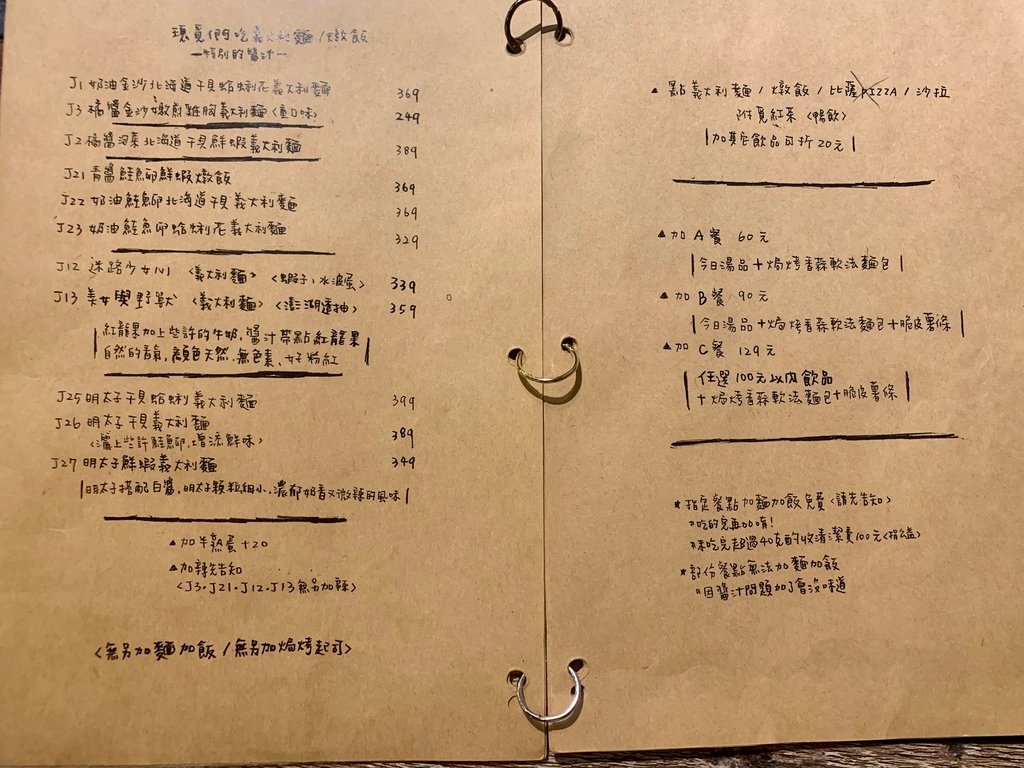 覓們吃義大利麵/燉飯
—特別的醬汁—
J1 奶油金沙北海道干貝蛤蜊花義大利麵 369
J3 橘醬金沙嫩煎雞胸義大利麵〈重口味〉 249
J2 橘醬 北海道干貝鮮蝦義大利麵 389
J21 青醬鮭魚卵鮮蝦燉飯 369
J22 奶油鮭魚卵北海道干貝義大利麵 369
J23 奶油鮭魚卵蛤蜊花義大利麵 329
J12 迷路少女心〈義大利麵〉〈蝦子,水波蛋〉 339
J13 美女與野獸〈義大利麵〉〈澎湖透抽〉 359
紅龍果加上些許的牛奶,醬汁帶點紅龍果
自然的香氣,顏色天然、無色素、好粉紅
J25 明太子干貝蛤蜊義大利麵 399
J26 明太子干貝義大利麵 389
〈灑上些許鮭魚卵,增添鮮味〉
J27 明太子鮮蝦義大利麵 349
明太子搭配白醬,明太子顆粒細小,濃郁奶香又微辣的風味
▲加半熟蛋+20
▲加辣先告知
〈J3.J21.J12.J13無另加辣〉
〈無另加麵加飯/無另加焗烤起司〉
▲點義大利麵/燉飯/比薩PIZZA/沙拉
附覓紅茶〈暢飲〉
加其它飲品可折20元
▲加A餐 60元
今日湯品+焗烤香蒜軟法麵包
▲加B餐 90元
今日湯品+焗烤香蒜軟法麵包+脆皮薯條
▲加C餐 129元
任選100元以內飲品
+焗烤香蒜軟法麵包+脆皮薯條
*指定餐點加麵加飯免費〈請先告知〉
吃的完再加唷!
未吃完超過40克酌收清潔費100元〈捐公益〉
*部份餐點無法加麵加飯
因醬汁問題加了會沒味道